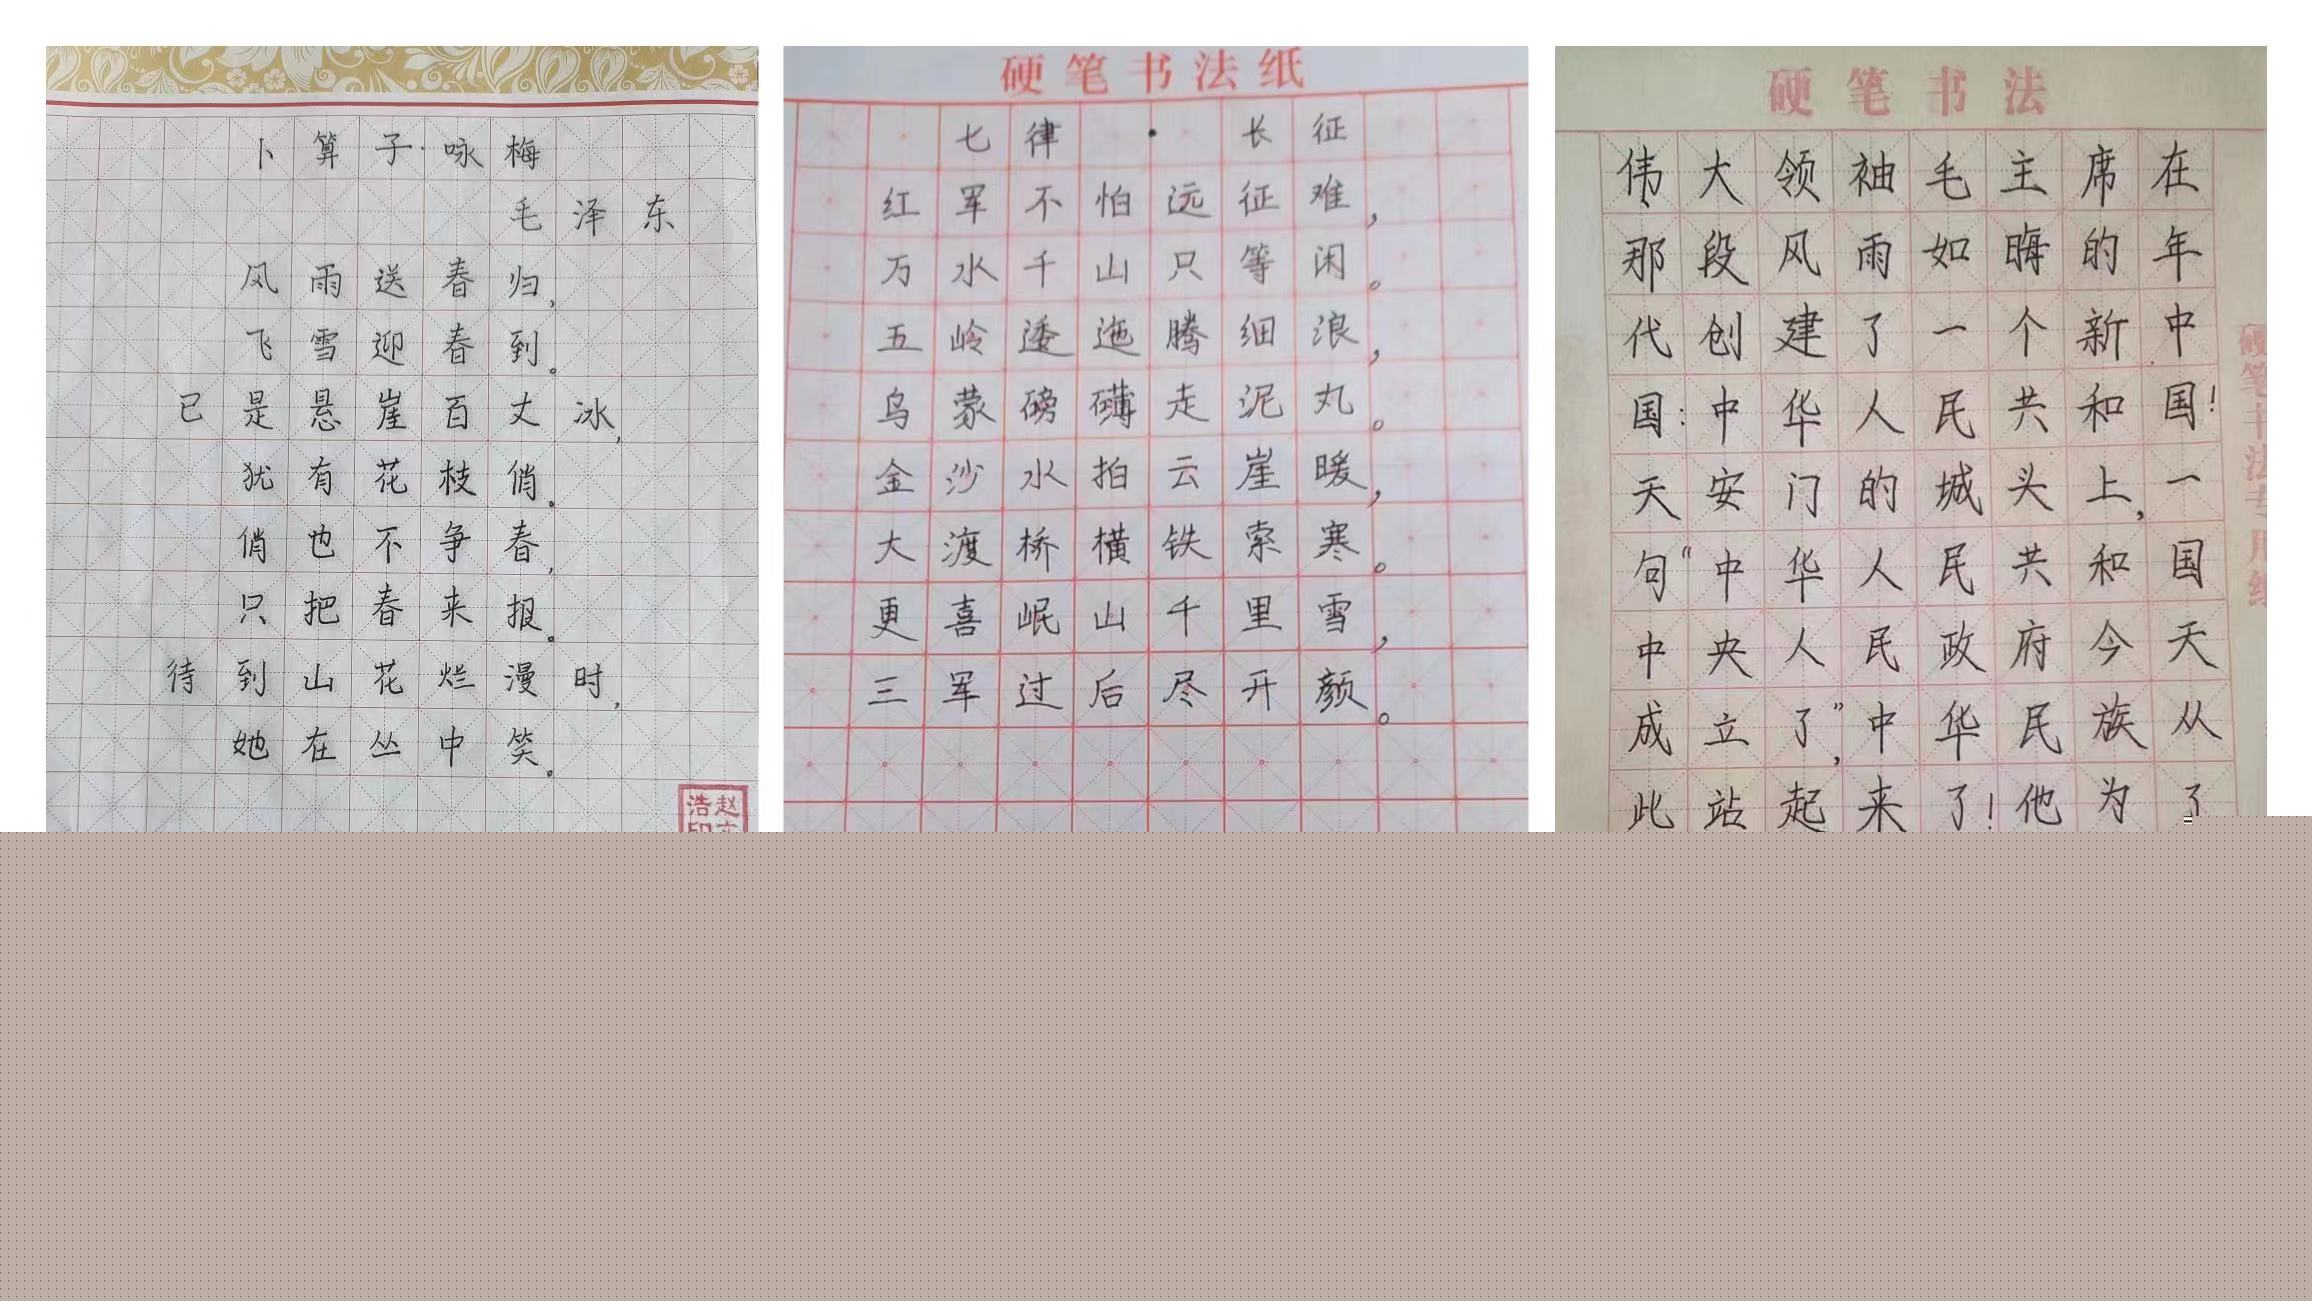 卜算子·咏梅
毛泽东
风雨送春归,
飞雪迎春到。
已是悬崖百丈冰,
犹有花枝俏。
俏也不争春,
只把春来报。
待到山花烂漫时,
她在丛中笑。
赵
浩
硬笔书法纸
七律·长征
红军不怕远征难,
万水千山只等闲。
五岭逶迤腾细浪,
乌蒙磅礴走泥丸。
金沙水拍云崖暖,
大渡桥横铁索寒。
更喜岷山千里雪,
三军过后尽开颜。
硬笔书法
伟大领袖毛主席在
那段风雨如晦的年
代创建了一个新中
国:中华人民共和国!
天安门的城头上,一
句"中华人民共和国
中央人民政府今天
成立了",中华民族从
此站起来了!他为了
硬笔书法专用纸